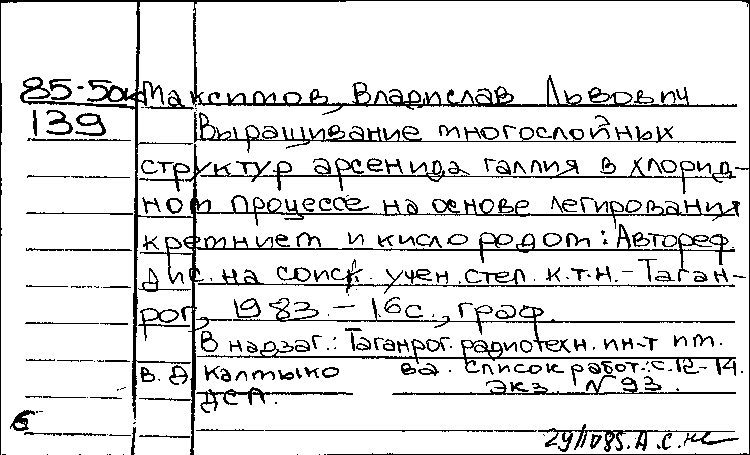 85-5ак Максимов, Владислав Львович
139 Выращивание многослойных
структур арсенида галлия в хлорид-
ном процессе на основе легирования
кремнием и кислородом: Автореф.
дис. на соиск. учен. степ. к.т.н. - Таган-
рог, 1983. - 16 с., граф.
В надзаг.: Таганрог. радиотехн. ин-т им.
В. Д. Калмыко ва. Список работ: с. 12-14.
Экз. N 93.
ДСП.
б